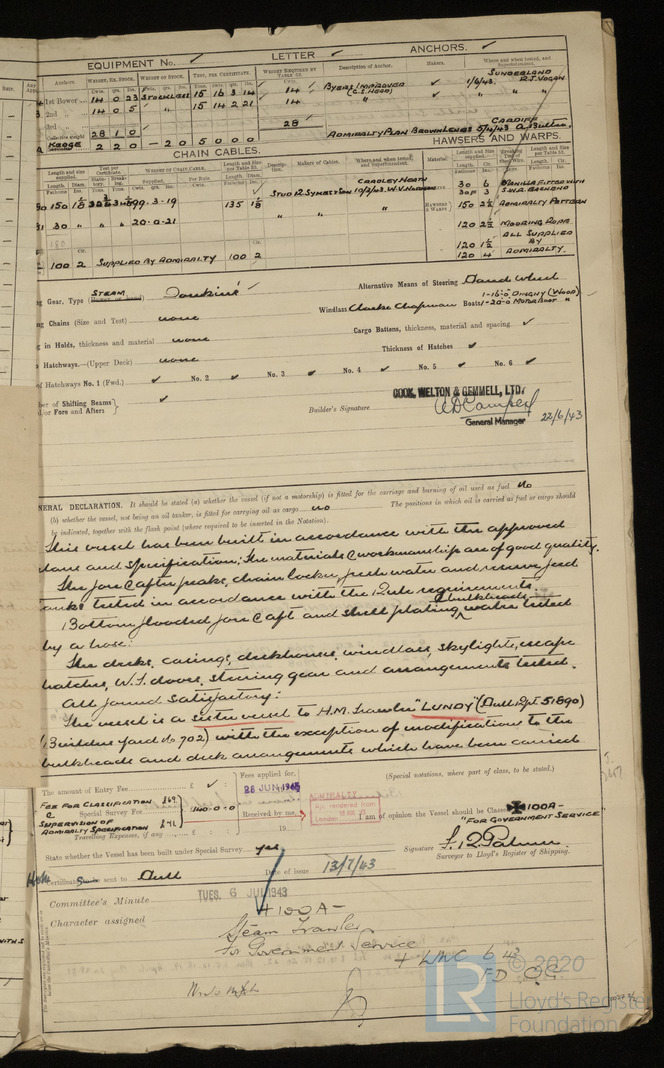 EQUIPMENT No. ✓ LETTER ✓ ANCHORS. ✓
Anchors. WEIGHT, EX. STOCK. WEIGHT OF STOCK. TEST, PER CERTIFICATE. WEIGHT REQUIRED BY TABLE 53. Description of Anchor. MAKERS. Where and when tested, and Superintendent.
SUNDERLAND
1st Bower 14 0 23 STOCKLESS 15 16 3 14 14 ✓ BYERS IMPROVED ✓ 1/6/43 R.J. VOGAN
(C.S. HEAD)
2nd " 14 0 5 " 15 14 2 21 14 " " "
3rd "
Collective weight 28 1 0 28 CARDIFF
KEDGE 2 2 0 - 2 0 5 0 0 0 ADMIRALTY PLAN BROWN LENOX 5/4/43
CHAIN CABLES. HAWSERS AND WARPS.
Length and size supplied. Test per Certificate. WEIGHT OF CHAIN CABLE. Length and size per Table 53. Descrip-tion. Makers of Cables. Where and when tested and Superintendent. Material. Length and size supplied. Breaking Test of Steel Wire. Length and size per Table 53.
CRADLEY HEATH
150 1⅛ 99-3-19 135 1⅛ STUD R. SYKES & SON 10/2/43 W.V.
30 " " " 20-0-21 " " "
100 2 SUPPLIED BY ADMIRALTY 100 2
30 6 MANILLA FITTED WITH
30F 3 S.W.R.
HAWSERS & WARPS 150 2½ ADMIRALTY PATTERN
120 2½ MOORING ROPE
120 1½ ALL SUPPLIED BY
120 4 ADMIRALTY.
g Gear, Type STEAM Donkin's ✓ Alternative Means of Steering Hand Wheel
g Chains (Size and Test) none Windlass Clarke Chapman Boats 1-16'-0 DINGHY (WOOD)
1-20-0 MOTOR BOAT "
g in Holds, thickness and material none Cargo Battens, thickness, material and spacing ✓
Hatchways.—(Upper Deck) none Thickness of Hatches ✓
of Hatchways No. 1 (Fwd.) ✓ No. 2 ✓ No. 3 ✓ No. 4 ✓ No. 5 ✓ No. 6 ✓
ber of Shifting Beams ✓
/or Fore and Afters
Builder's Signature COOK, WELTON & GEMMELL, LTD.
General Manager 22/6/43
NERAL DECLARATION. It should be stated (a) whether the vessel (if not a motorship) is fitted for the carriage and burning of oil used as fuel no
(b) whether the vessel, not being an oil tanker, is fitted for carrying oil as cargo no The positions in which oil is carried as fuel or cargo should
be indicated, together with the flash point (where required to be inserted in the Notation).
This vessel has been built in accordance with the approved
plans and specification; the materials & workmanship are of good quality.
The fore & after peaks, chain locker, fresh water and reserve feed
tanks tested in accordance with the Rule requirements.
Bottom flooded fore & aft and shell plating, bulkheads water tested
by a hose.
The decks, casings, deckhouses, windlass, skylights, escape
hatches, W.T. doors, steering gear and arrangements tested.
All found satisfactory.
The vessel is a sister vessel to H.M. Trawler "LUNDY" (Hull Rpt 51890)
(Builders yard No 702) with the exception of modifications to the
bulkheads and deck arrangements which have been carried
The amount of Entry Fee £ ✓ : Fees applied for, (Special notations, where part of class, to be stated.)
FEE FOR CLASSIFICATION 28 JUN 1943
&
Special Survey Fee £ 140-0-0 Received by me, ADMIRALTY I am of opinion the Vessel should be Classed ✠100A-
SUPERVISION OF "FOR GOVERNMENT SERVICE
ADMIRALTY SPECIFICATION
Travelling Expenses, if any £ : : 19
State whether the Vessel has been built under Special Survey yes Signature
Surveyor to Lloyd's Register of Shipping.
Certificate to be sent to Hull Date of issue 13/7/43
Committee's Minute TUES. 6 JUL 1943
Character assigned +100A-
Steam Trawler
For Government Service
+ LMC 6 43
FD CG
© 2020
LR Lloyd's Register
Foundation